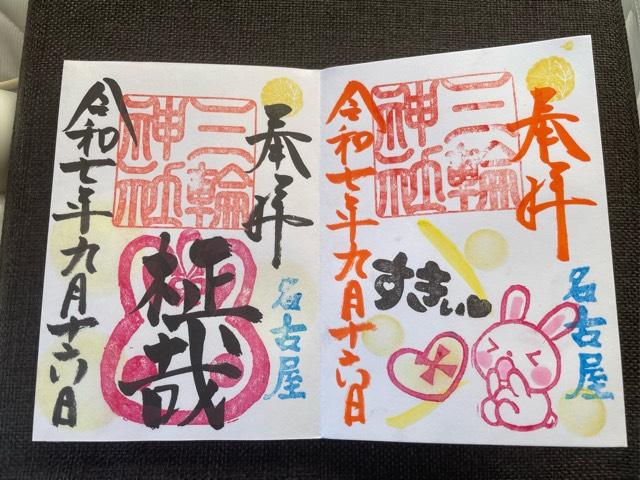 奉拝
三輪
神社
令和七年九月十六日
名古屋
柾哉
奉拝
三輪
神社
令和七年九月十六日
名古屋
すきぃ